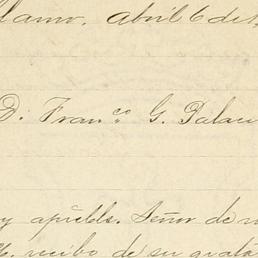 lamo, Abril 6 de
D. Fran.co G. Palaci
y apble. Señor de m
recibo de su grata